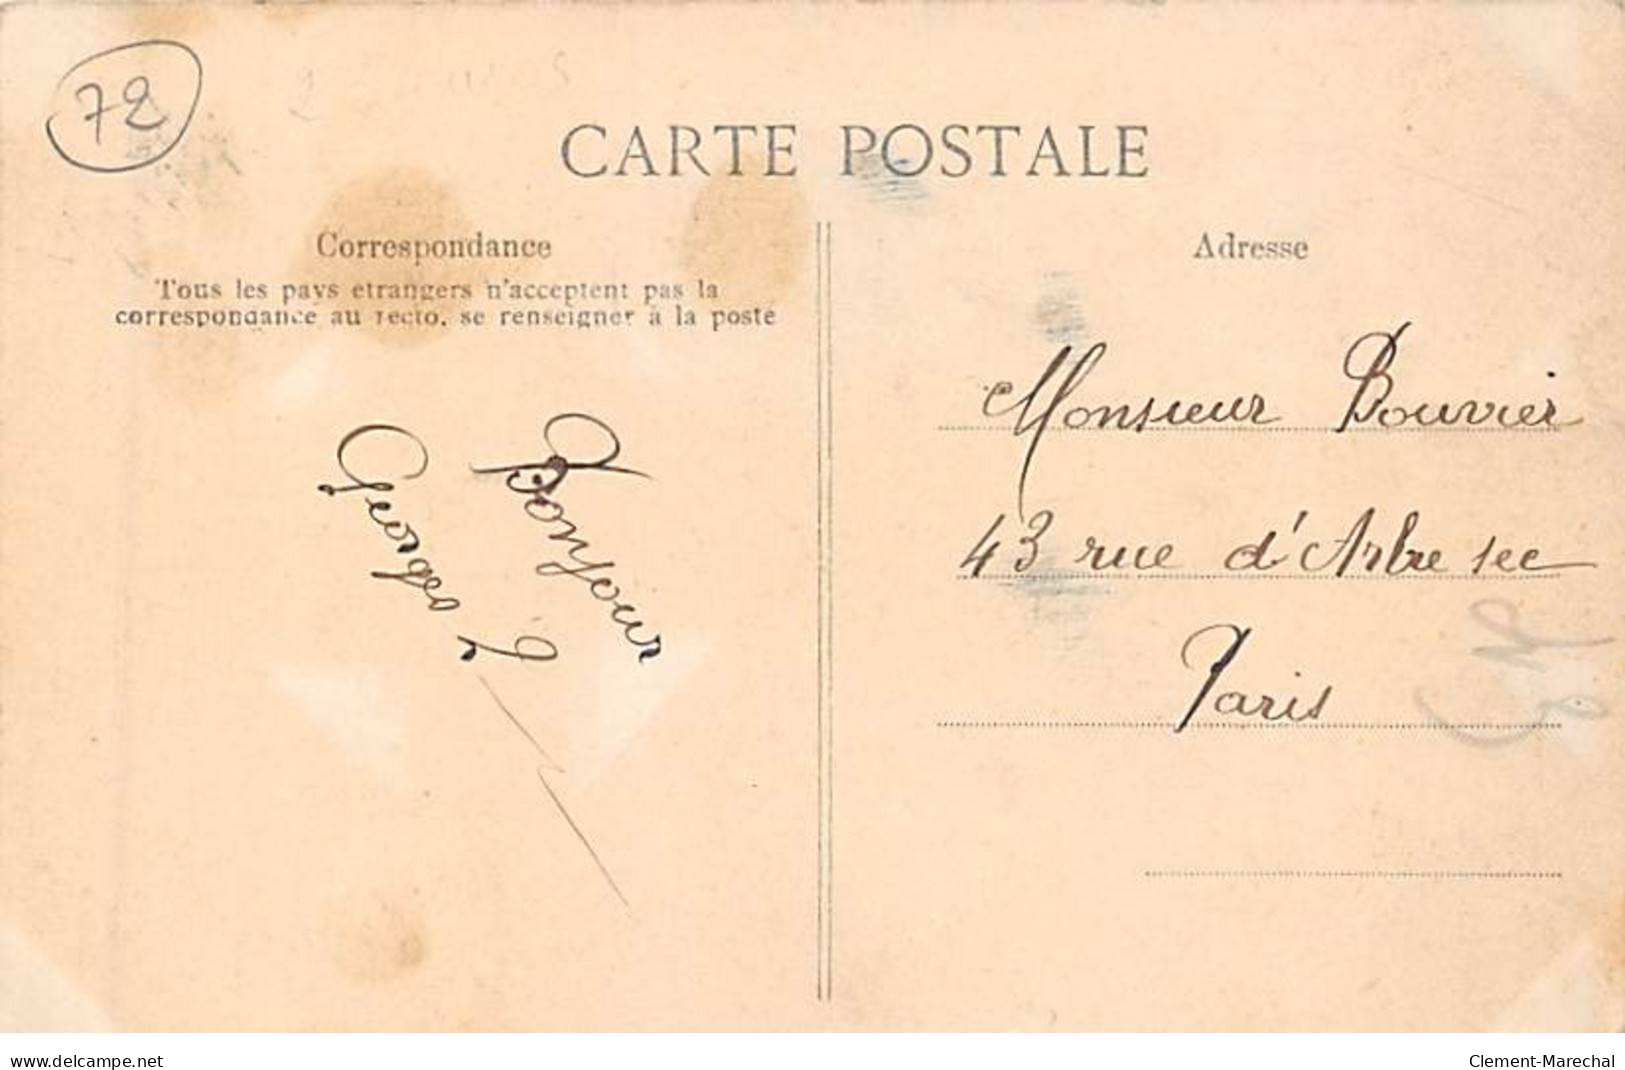 72
CARTE POSTALE
Correspondance
Tous les pays etrangers n'acceptent pas la
correspondance au recto, se renseigner à la poste
Bonjour
Georges
Adresse
Monsieur Bouvier
43 rue d'Arbre sec
Paris
www.delcampe.net
Clement-Marechal